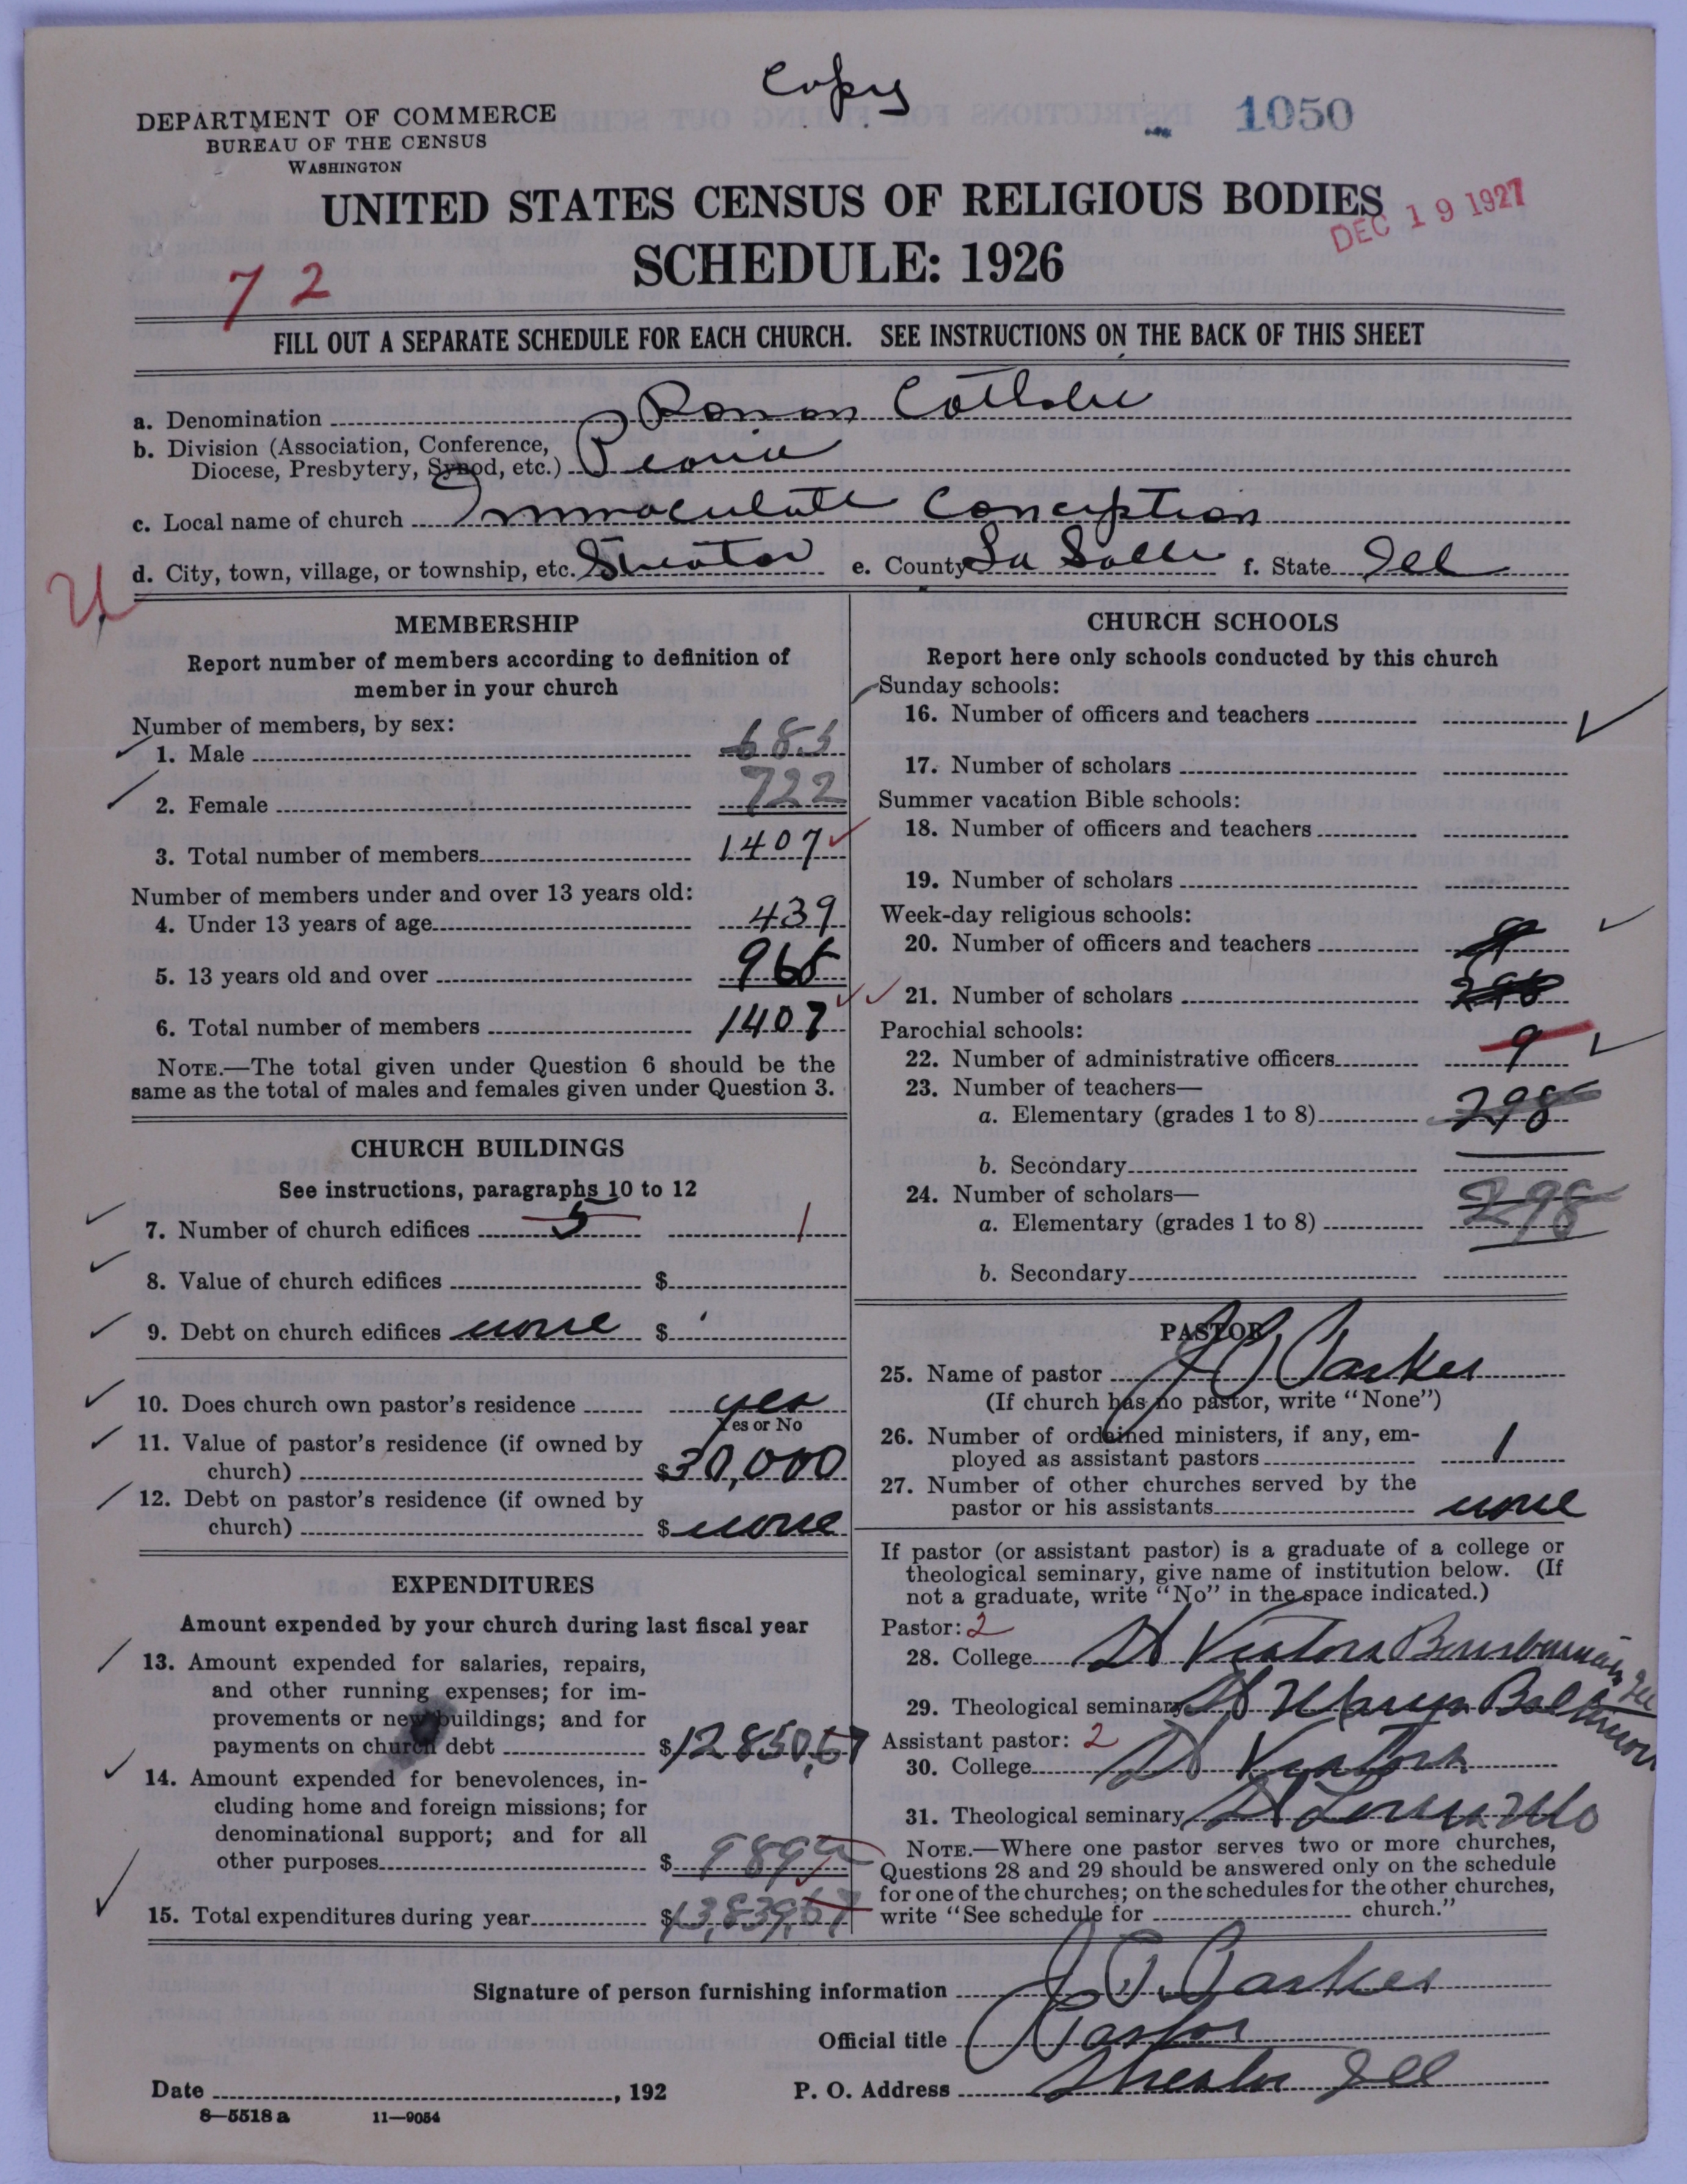 Copy
1050
DEPARTMENT OF COMMERCE
BUREAU OF THE CENSUS
WASHINGTON
UNITED STATES CENSUS OF RELIGIOUS BODIES
DEC 19 1927
SCHEDULE: 1926
72
FILL OUT A SEPARATE SCHEDULE FOR EACH CHURCH. SEE INSTRUCTIONS ON THE BACK OF THIS SHEET
a. Denomination Roman Catholic
b. Division (Association, Conference,
Diocese, Presbytery, Synod, etc.) Peoria
c. Local name of church Immaculate Conception
d. City, town, village, or township, etc. Streator e. County La Salle f. State Ill
MEMBERSHIP
Report number of members according to definition of
member in your church
Number of members, by sex:
1. Male 685
2. Female 722
3. Total number of members 1407
Number of members under and over 13 years old:
4. Under 13 years of age 439
5. 13 years old and over 968
6. Total number of members 1407
NOTE.—The total given under Question 6 should be the
same as the total of males and females given under Question 3.
CHURCH BUILDINGS
See instructions, paragraphs 10 to 12
7. Number of church edifices 5 1
8. Value of church edifices $
9. Debt on church edifices none $
10. Does church own pastor's residence yes
Yes or No
11. Value of pastor's residence (if owned by
church) $30,000
12. Debt on pastor's residence (if owned by
church) $ none
EXPENDITURES
Amount expended by your church during last fiscal year
13. Amount expended for salaries, repairs,
and other running expenses; for im-
provements or new buildings; and for
payments on church debt $12850,57
14. Amount expended for benevolences, in-
cluding home and foreign missions; for
denominational support; and for all
other purposes $ 989
15. Total expenditures during year $13,839,57
CHURCH SCHOOLS
Report here only schools conducted by this church
Sunday schools:
16. Number of officers and teachers
17. Number of scholars
Summer vacation Bible schools:
18. Number of officers and teachers
19. Number of scholars
Week-day religious schools:
20. Number of officers and teachers 9
21. Number of scholars 298
Parochial schools:
22. Number of administrative officers 9
23. Number of teachers—
a. Elementary (grades 1 to 8) 298
b. Secondary
24. Number of scholars—
a. Elementary (grades 1 to 8) 298
b. Secondary
PASTOR
25. Name of pastor Parker
(If church has no pastor, write "None")
26. Number of ordained ministers, if any, em-
ployed as assistant pastors 1
27. Number of other churches served by the
pastor or his assistants none
If pastor (or assistant pastor) is a graduate of a college or
theological seminary, give name of institution below. (If
not a graduate, write "No" in the space indicated.)
Pastor: 2
28. College St Viators Bourbonnais Ill
29. Theological seminary St Marys Baltimore
Assistant pastor: 2
30. College St Viators
31. Theological seminary St Louis Mo
NOTE.—Where one pastor serves two or more churches,
Questions 28 and 29 should be answered only on the schedule
for one of the churches; on the schedules for the other churches,
write "See schedule for church."
Signature of person furnishing information Parker
Official title Pastor
Date , 192 P. O. Address Streator Ill
8—5518 a 11—9054